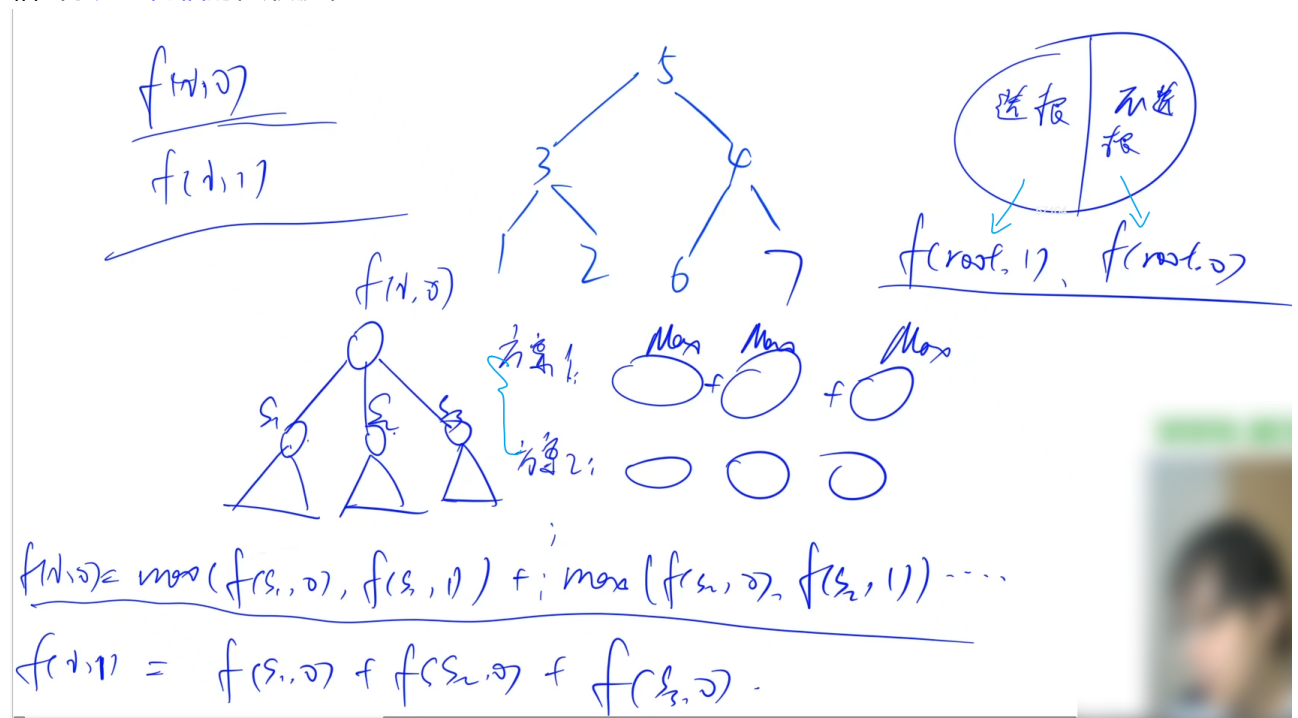 f(u,0)
f(u,1)
5
3 4
1 2 6 7
选报 不选
报
f(root,1)、f(root,0)
f(u,0)
S₁ S₂ S₃
方案1: Max + Max + Max
方案2:
f(u,0)= max(f(S₁,0), f(S₁,1)) + max(f(S₂,0), f(S₂,1)) ····
f(u,1) = f(S₁,0) + f(S₂,0) + f(S₃,0).